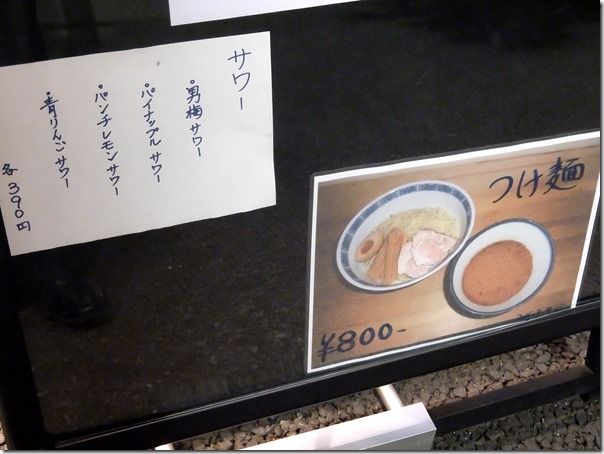 サワー
・男梅サワー
・パイナップルサワー
・パンチレモンサワー
・青りんごサワー
各390円
つけ麺
¥800-